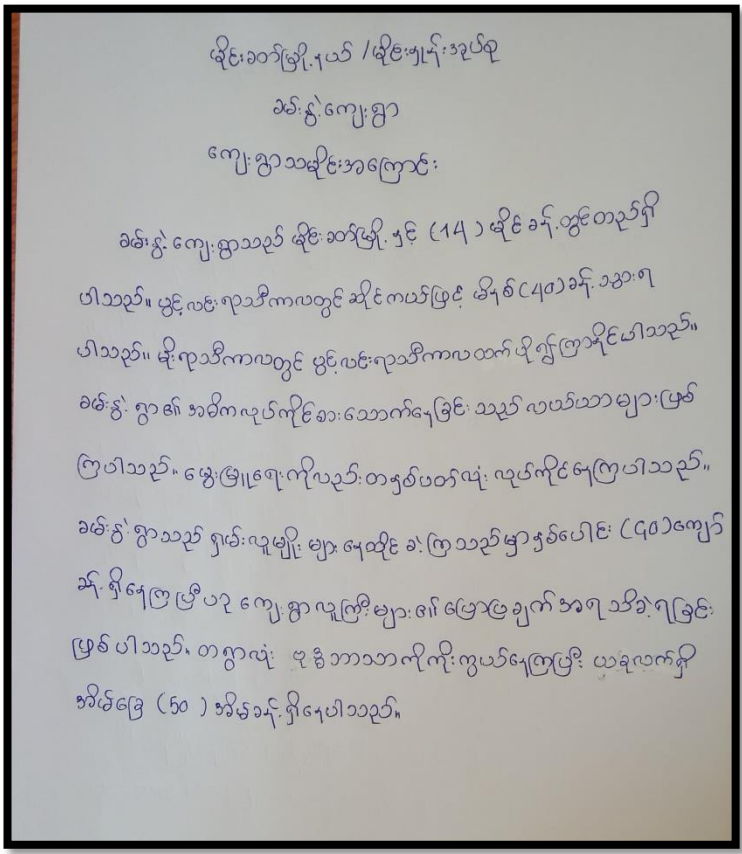 မိုင်းခတ်မြို့နယ် /မိုင်းဟွန်းအုပ်စု
ခမ်းနွဲ့ကျေးရွာ
ကျေးရွာသမိုင်းအကြောင်း
ခမ်းနွဲ့ ကျေးရွာသည် မိုင်းခတ်မြို့ နှင့် (14) မိုင်ခန့် တွင်တည်ရှိ
ပါသည်။ ပွင့်လင်းရာသီကာလတွင် ဆိုင်ကယ်ဖြင့် မိနစ် (40) ခန့် သွားရ
ပါသည်။ မိုးရာသီကာလတွင် ပွင့်လင်းရာသီကာလထက် ပို၍ကြာနိုင်ပါသည်။
ခမ်းနွဲ့ ရွာ၏ အဓိကလုပ်ကိုင်စားသောက်နေခြင်း သည် လယ်ယာများဖြစ်
ကြပါသည်။ မွေးမြူရေးကိုလည်းတနှစ်ပတ်လုံး လုပ်ကိုင်နေကြပါသည်။
ခမ်းနွဲ့ ရွာသည် ရှမ်းလူမျိုး များ နေထိုင် ခဲ့ကြသည်မှာနှစ်ပေါင်း (90)ကျော်
ခန့် ရှိနေကြပြီဟု ကျေးရွာလူကြီးများ၏ ပြောပြချက် အရ သိခဲ့ရခြင်း
ဖြစ်ပါသည်။ တရွာလုံး ဗုဒ္ဓဘာသာကိုကိုးကွယ်နေကြပြီး ယခုလက်ရှိ
အိမ်ခြေ (50) အိမ်ခန့် ရှိနေပါသည်။